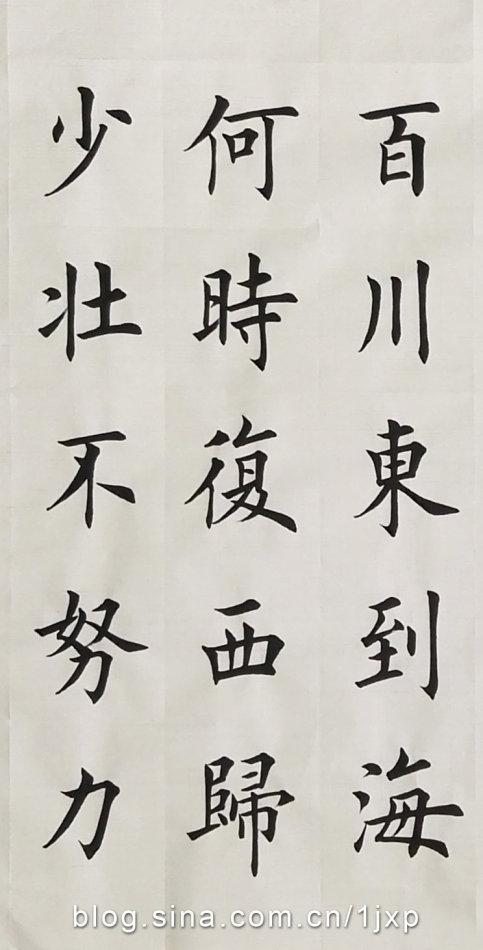 百川東到海
何時復西歸
少壮不努力
blog.sina.com.cn/1jxp